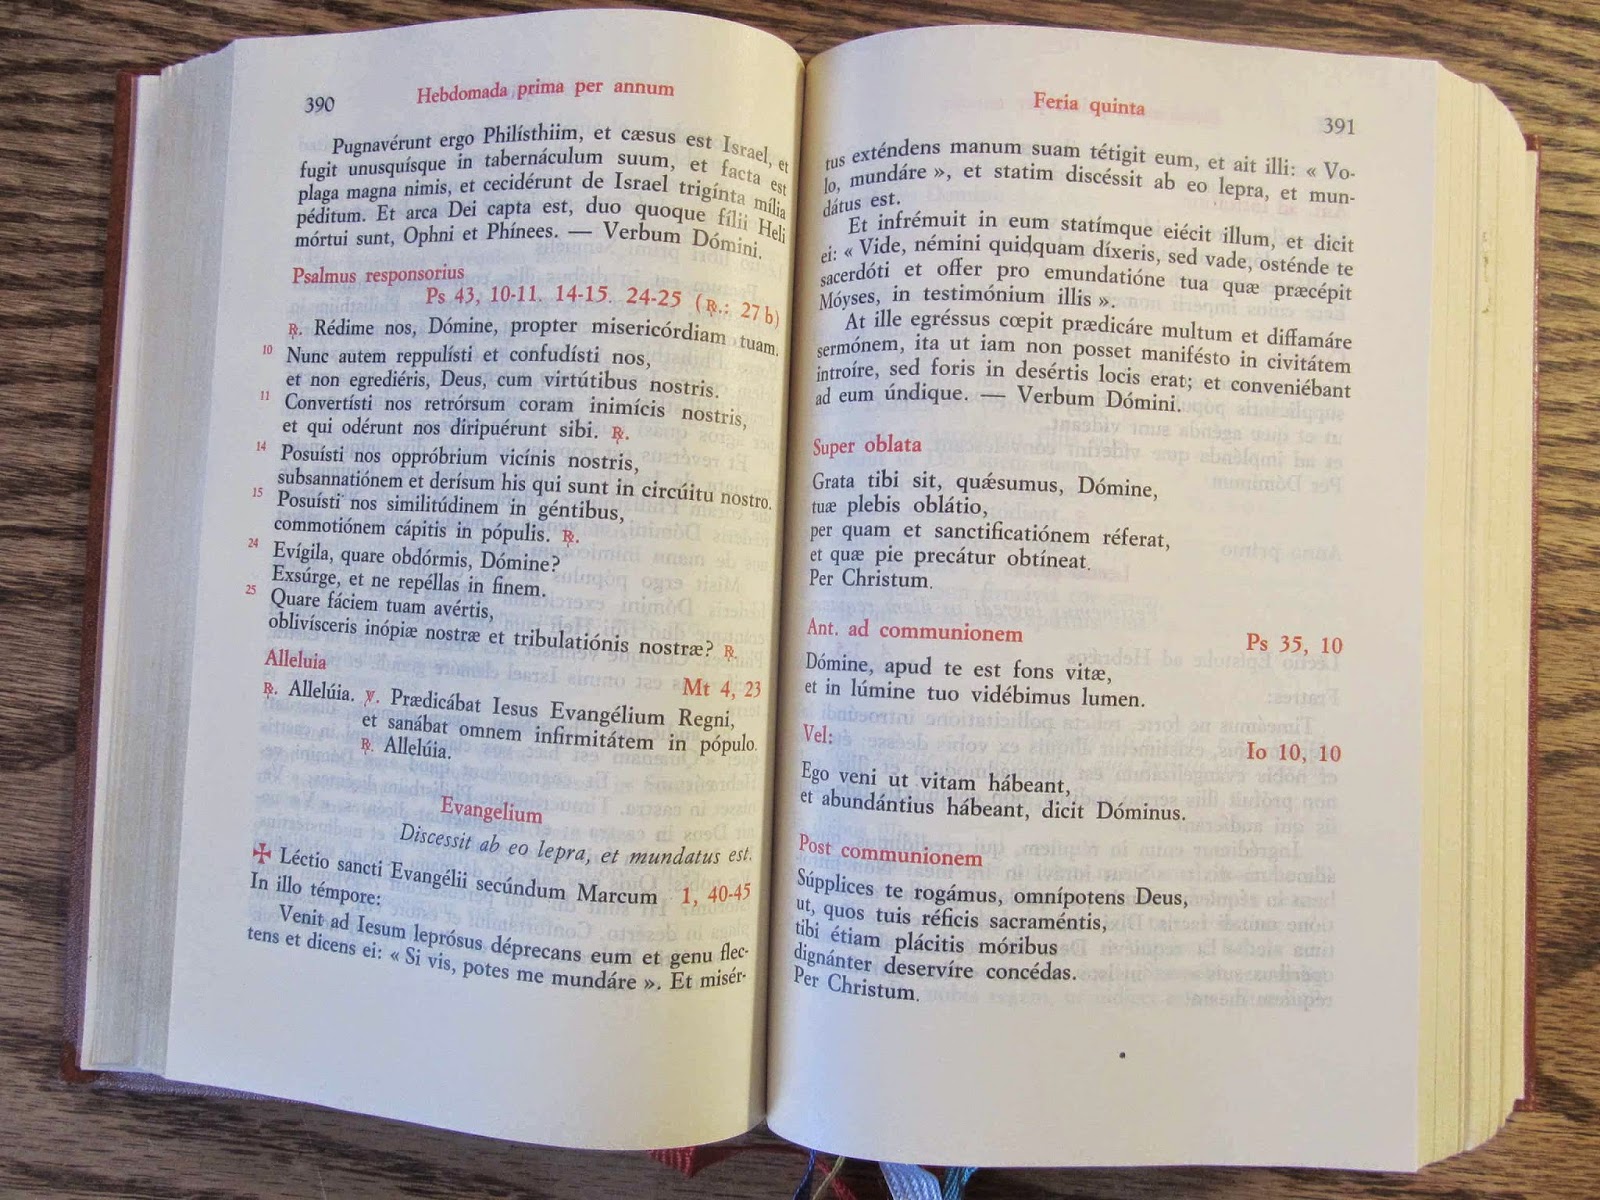 390
Hebdomada prima per annum
Pugnavérunt ergo Philísthiim, et cæsus est Israel, et
fugit unusquísque in tabernáculum suum, et facta est
plaga magna nimis, et cecidérunt de Israel trigínta mília
péditum. Et arca Dei capta est, duo quoque fílii Heli
mórtui sunt, Ophni et Phínees. — Verbum Dómini.
Psalmus responsorius
Ps 43, 10-11. 14-15. 24-25 (℟.: 27 b)
℟. Rédime nos, Dómine, propter misericórdiam tuam.
10 Nunc autem reppulísti et confudísti nos,
et non egrediéris, Deus, cum virtútibus nostris.
11 Convertísti nos retrórsum coram inimícis nostris,
et qui odérunt nos diripuérunt sibi. ℟.
14 Posuísti nos oppróbrium vicínis nostris,
subsannatiónem et derísum his qui sunt in circúitu nostro.
15 Posuísti nos similitúdinem in géntibus,
commotiónem cápitis in pópulis. ℟.
24 Evígila, quare obdórmis, Dómine?
Exsúrge, et ne repéllas in finem.
25 Quare fáciem tuam avértis,
oblivísceris inópiæ nostræ et tribulatiónis nostræ? ℟.
Alleluia
Mt 4, 23
℟. Allelúia. ℣. Prædicábat Iesus Evangélium Regni,
et sanábat omnem infirmitátem in pópulo.
℟. Allelúia.
Evangelium
Discessit ab eo lepra, et mundatus est.
✠ Léctio sancti Evangélii secúndum Marcum 1, 40-45
In illo témpore:
Venit ad Iesum leprósus déprecans eum et genu flec-
tens et dicens ei: « Si vis, potes me mundáre ». Et misér-
Feria quinta
391
tus exténdens manum suam tétigit eum, et ait illi: « Vo-
lo, mundáre », et statim discéssit ab eo lepra, et mun-
dátus est.
Et infrémuit in eum statímque eiécit illum, et dicit
ei: « Vide, némini quidquam díxeris, sed vade, osténde te
sacerdóti et offer pro emundatióne tua quæ præcépit
Móyses, in testimónium illis ».
At ille egréssus cœpit prædicáre multum et diffamáre
sermónem, ita ut iam non posset manifésto in civitátem
introíre, sed foris in desértis locis erat; et conveniébant
ad eum úndique. — Verbum Dómini.
Super oblata
Grata tibi sit, quǽsumus, Dómine,
tuæ plebis oblátio,
per quam et sanctificatiónem réferat,
et quæ pie precátur obtíneat.
Per Christum.
Ant. ad communionem
Ps 35, 10
Dómine, apud te est fons vitæ,
et in lúmine tuo vidébimus lumen.
Vel:
Io 10, 10
Ego veni ut vitam hábeant,
et abundántius hábeant, dicit Dóminus.
Post communionem
Súpplices te rogámus, omnípotens Deus,
ut, quos tuis réficis sacraméntis,
tibi étiam plácitis móribus
dignánter deservíre concédas.
Per Christum.